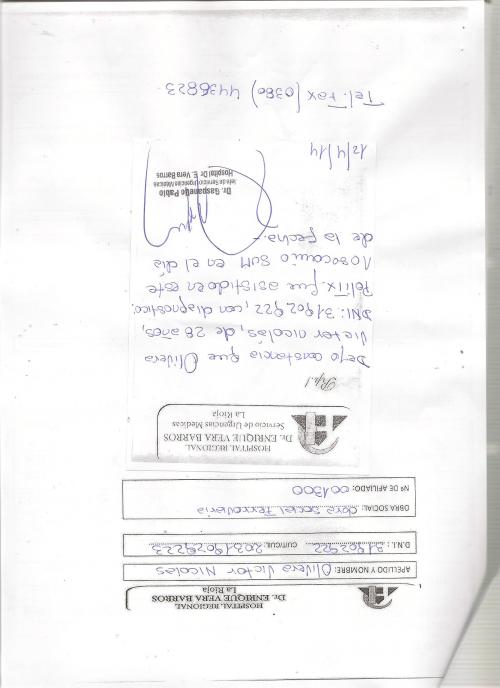 HOSPITAL REGIONAL
Dr. ENRIQUE VERA BARROS
La Rioja
APELLIDO Y NOMBRE: Olivera Victor Nicolas
D.N.I.: 31902922 CUIT/CUIL: 20319029223
OBRA SOCIAL: Obra Social Ferroviaria
Nº DE AFILIADO: 001300
HOSPITAL REGIONAL
Dr. ENRIQUE VERA BARROS
Servicio de Urgencias Medicas
La Rioja
Rp./
Dejo constancia que Olivera
Victor nicolás, de 28 años,
DNI: 31902922, con diagnóstico:
Politx. fue asistido en este
nosocomio SUM en el día
de la fecha.-
Dr. Gaspanello Pablo
Jefe de Servicio Urgencias Médicas
Hospital Dr. E. Vera Barros
12/4/14
Tel. Fax (0380) 4436823